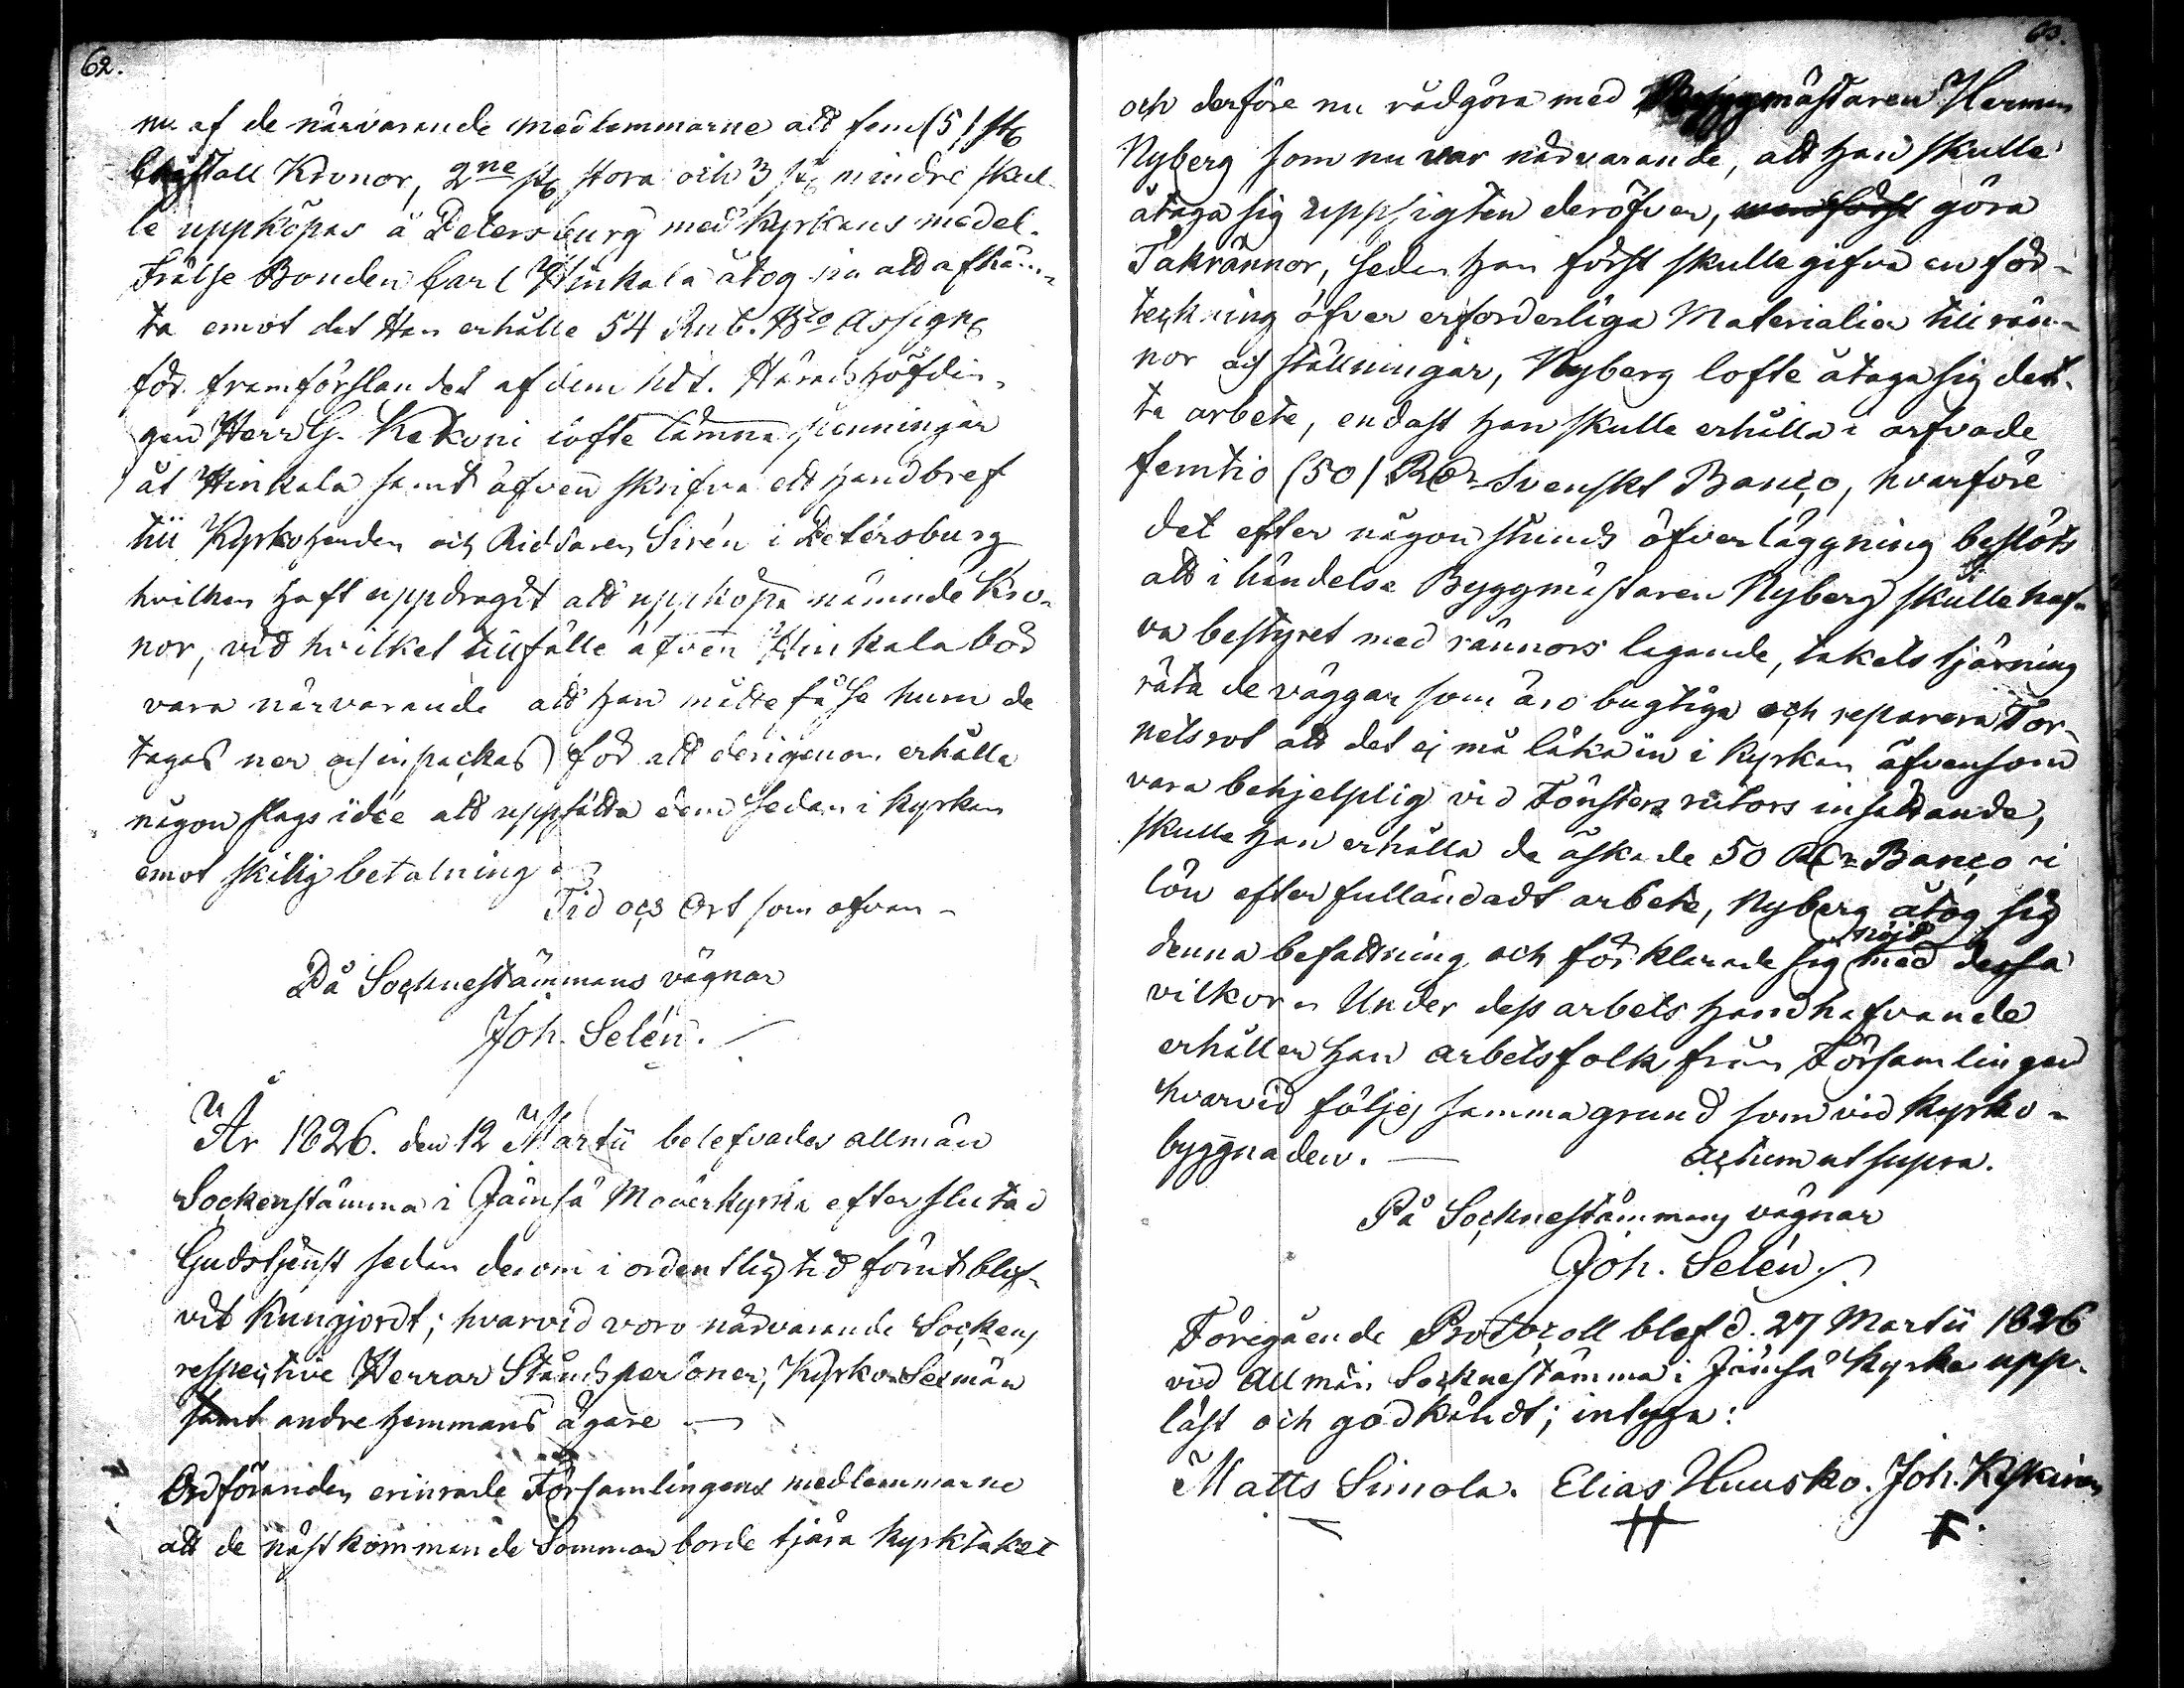 62.
nu af de närvarande medlemmarne att fem (5) st.
Christall Kronor, 2ne st. stora och 3 st. mindre skul-
le uppköpas i Petersburg med Kyrkans medel.
Frälse Bonden Carl Hinkala åtog sig att afhäm-
ta emot det Han erhålle 54 Rub. Bco Assign.
för framförslandet af dem hit. Häradshöfdin-
gen Herr G. Kekoni lofte lämna penningar
åt Hinkala samt äfven skrifva ett handbref
till Kyrkoherden och Riddaren Sirén i Petersburg
hvilken haft uppdragit att uppköpa nämnde Kro-
nor, vid hvilket tillfälle äfven Hinkala bör
vara närvarande att han måtte få se huru de
tagas ner och inpackas för att derigenom erhålla
någon slags idée att uppsätta dem sedan i Kyrkan
emot skilig betalning
Tid och Ort som ofvan
På Sochnestämmans vägnar
Joh. Selén.
År 1826. den 12 Martii belefvades allmän
Sockenstämma i Jämsä Moderkyrka efter slutad
Gudstjenst sedan derom i ordentlig tid förut blif-
vit kungjordt; hvarvid voro närvarande Sockens
respective Herrar Ståndspersoner, Kyrko Sexmän
samt andre hemmans ägare
Ordföranden erinrade Församlingens medlemmarne
att de nästkommande Sommar borde tjära kyrktaket
63.
och derföre nu rådgöra med Byggmästaren Herman
Nyberg som nu var närvarande, att han skulle
åtaga sig uppsigten deröfver, göra
Takrännor, sedan han först skulle gifva en för-
teckning öfver erforderliga Materialier till rän-
nor och ställningar, Nyberg lofte åtaga sig det-
ta arbete, endast han skulle erhålla i arfvode
femtio (50) Rdr Svenskt Banco, hvarföre
det efter någon stunds öfverläggning beslöts
att i händelse Byggmästaren Nyberg skulle haf-
va bestyret med rännors lagande, takets tjärning
räta de väggar som äro bugtiga och reparera Tor-
nets rot att det ej må läka in i kyrkan äfvensom
vara behjelplig vid Fönsters rutors insättande,
skulle han erhålla de äskade 50 Rdr Banco i
lön efter fulländadt arbete, Nyberg åtog sig
denna befattning och förklarade sig nöjd med dessa
vilkor. Under dess arbets handhafvande
erhåller han arbetsfolk från Församlingen
hvarvid följes samma grund som vid Kyrko-
byggnaden. Actum ut supra.
På Sochnestämmans vägnar
Joh. Selén
Föregående Protocoll blef d. 27 Martii 1826
vid Allmän Sochnestämma i Jämsä Kyrka upp-
läst och godkändt; intyga:
Matts Simola. Elias Huusko. Joh. Kyskinen